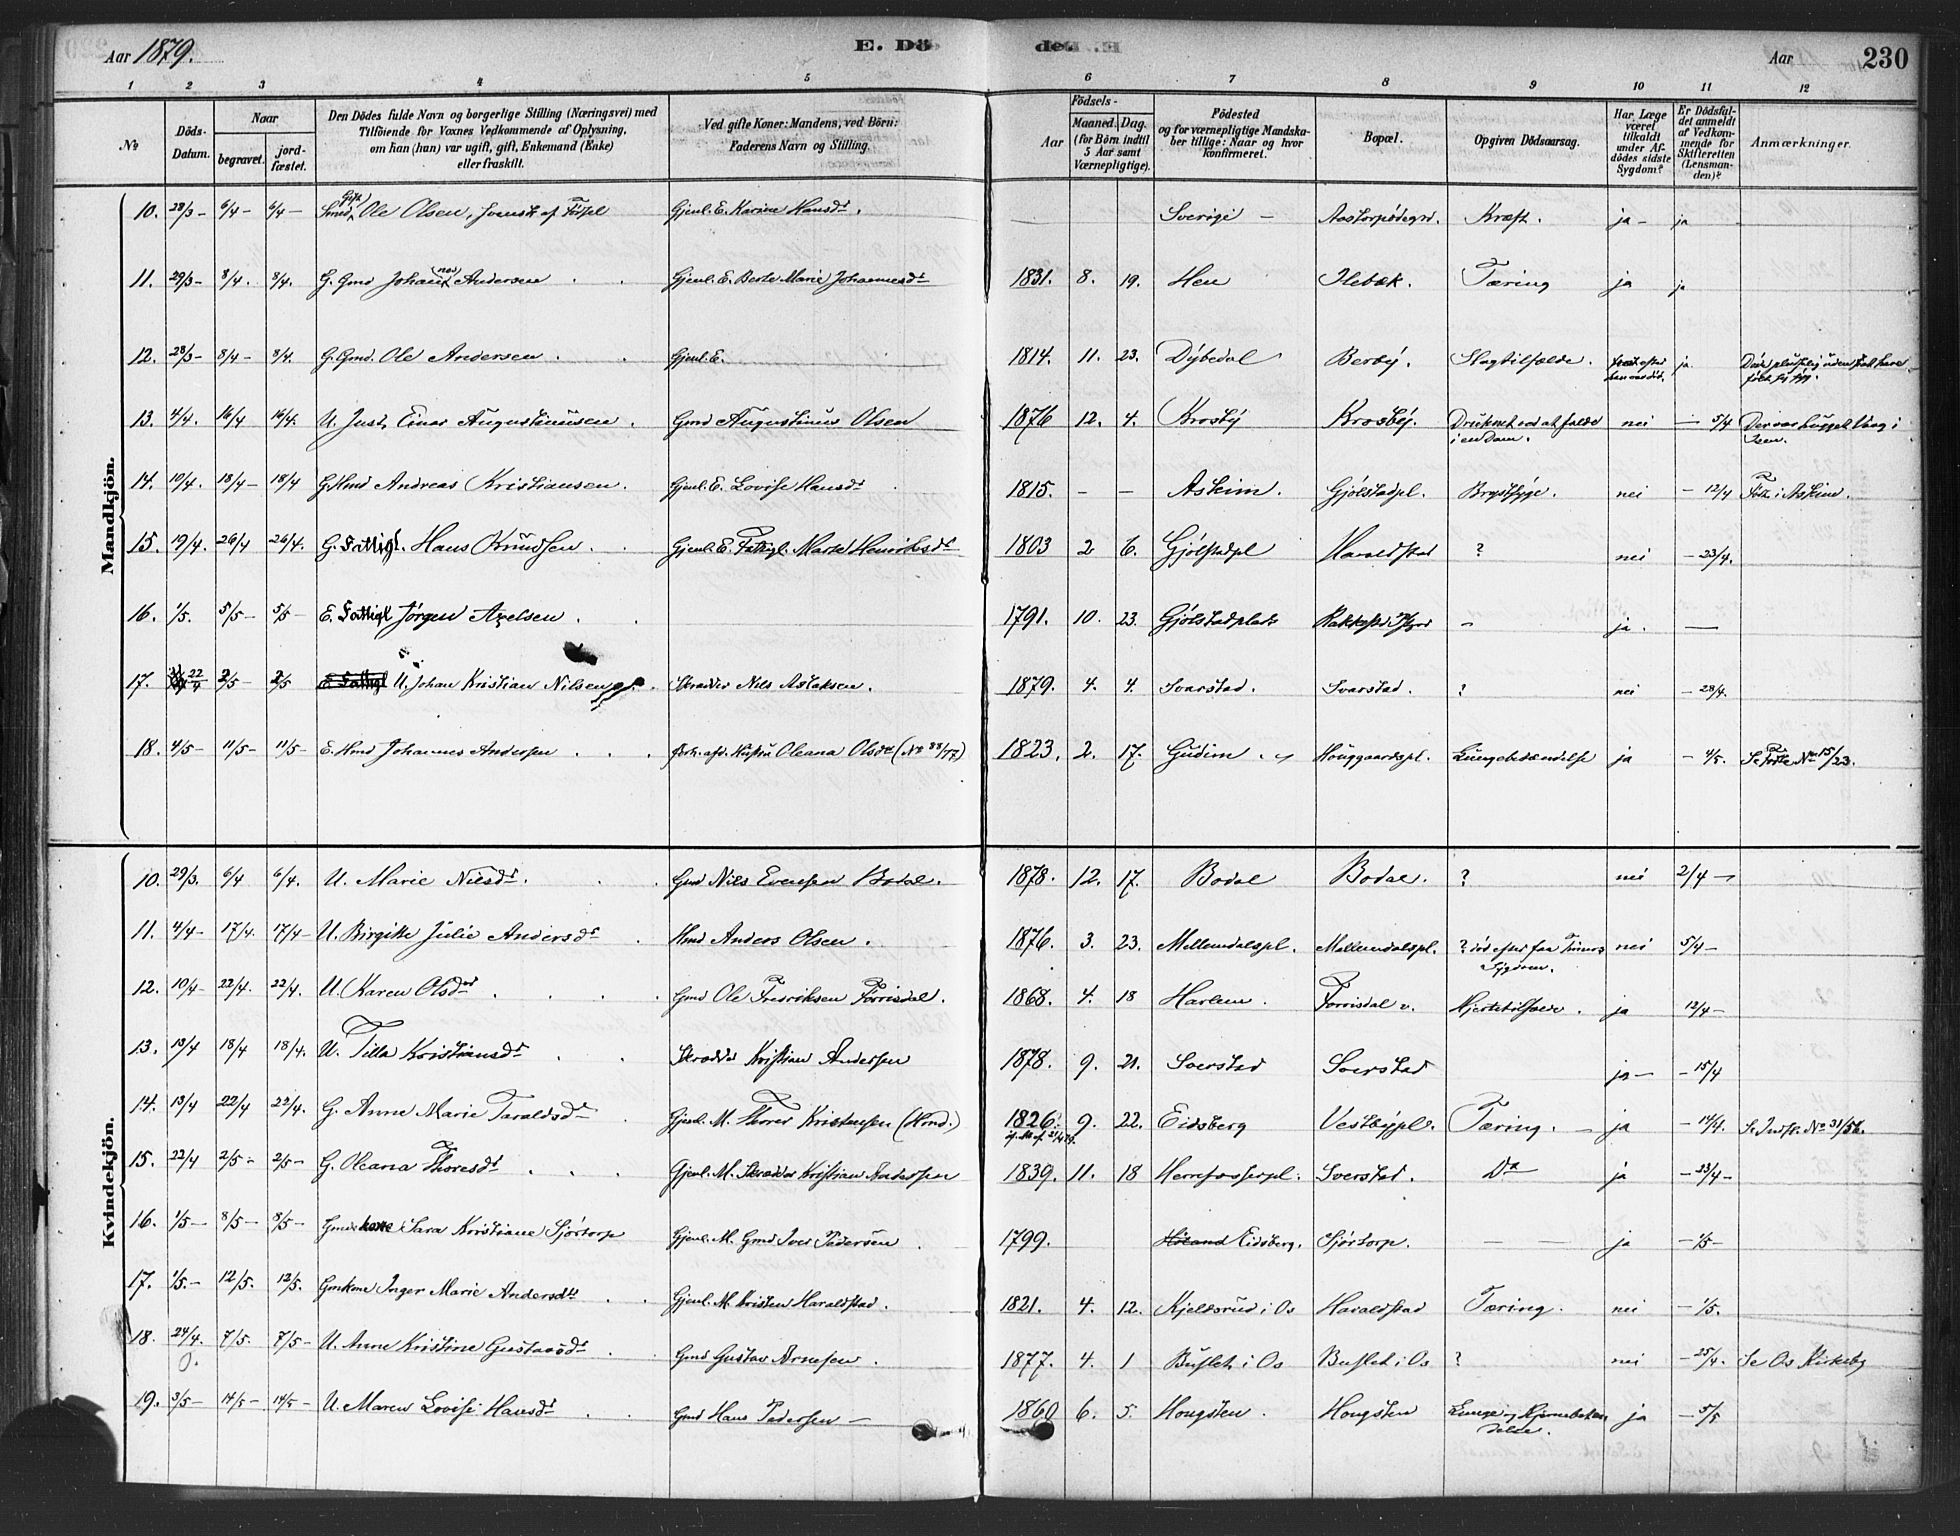 Aar 1879.
E. Döde.
Aar
230
1 2 3 4 5 6 7 8 9 10 11 12
№
Döds-Datum.
Naar
begravet.
jordfæstet.
Den Dödes fulde Navn og borgerlige Stilling (Næringsvei) med
Tilföiende for Voxnes Vedkommende af Oplysning,
om han (hun) var ugift, gift, Enkemand (Enke)
eller fraskilt.
Ved gifte Koner: Mandens, ved Börn:
Faderens Navn og Stilling.
Födsels-
Aar
Maaned. Dag.
(for Börn indtil
5 Aar samt
Værnepligtige).
Födested
og for værnepligtige Mandskaber tillige: Naar og hvor
konfirmeret.
Bopæl.
Opgiven Dödsaarsag.
Har Læge
været
tilkaldt
under Afdödes sidste
Sygdom?
Er Dödsfaldet anmeldt
af Vedkommende for
Skifteretten
(Lensmanden)?
Anmærkninger.
Mandkjön.
10. 28/3 – 6/4 – 6/4 – Gift Smed, Ole Olsen, Gjenl. E. Karine Hansdr. Sverige – Kræft. ja – ja
11. 29/3 – 8/4. 8/4. G. Gmd Johannes Andersen Gjenl. E. Berte Marie Johannesdr 1831. 8. 19. Hen Ilebæk. Tæring ja ja
12. 28/3 – 8/4 – 8/4. G. Gmd. Ole Andersen Gjenl. E. 1814. 11. 23. Dybedal Berby. Slagtilfælde. ja
13. 4/4. 16/4 16/4. U. Just Einar Augustinusen. Gmd Augustinus Olsen 1876 12. 4. Krosby Krosby. Druknet ved at falde i en Dam. nei – 5/4
14. 10/4. 18/4 – 18/4 G. Hmd Andreas Kristiansen. Gjenl. E. Lovise Hansdr 1815. – – Askim. Gjølstadpl. Brystsyge. nei – 12/4 Født i Askim.
15. 19/4. 26/4 26/4. G. Fattigl. Hans Knudsen. Gjenl. E. Fattigl. Marte Henriksdr 1803 2 6. Gjølstadpl Haraldstad ? nei – 23/4.
16. 1/5. 5/5 – 5/5 – E. Fattigl Jørgen Axelsen. 1791. 10. 23. Gjølstadplads – ja. –
17. 22/4 2/5 – 2/5 U. Johan Kristian Nilsen Skrædder Nils Aslaksen. 1879. 4. 4. Svarstad. Svarstad. ? nei – 28/4.
18. 4/5 – 11/5 – 11/5 – E. Hmd Johannes Andersen forh. afd. Hustru Oleana Olsdr (No 88/77) 1823. 2. 17. Gudim Houggaardspl. Lungebetændelse ja – 4/5. Se Fødte No 15/23.
Kvindekjön.
10. 29/3. 6/4 6/4. U. Marie Nilsdr. Gmd Nils Evensen Bodal. 1878. 12. 17. Bodal Bodal. ? nei 2/4 –
11. 4/4 – 17/4. 17/4 – U. Birgitte Julie Andersdr Hmd Anders Olsen. 1876. 3. 23. Mellemdalspl. Mellemdalspl. ? død efter faa Timers Sygdom. nei 5/4 –
12. 10/4 – 22/4. 22/4. U. Karen Olsdr Gmd Ole Fredriksen Forrisdal. 1868. 4. 18 Harlem. Forrisdal v. Hjertetilfælde. ja 12/4 –
13. 13/4 18/4 18/4. U. Tilla Kristiansdr Skrædder Kristian Andersen 1878. 9. 21. Sverstad Sverstad ja – – 15/4
14. 13/4 22/4 22/4. G. Anne Marie Taraldsdr Gjenl. M. Thorer Kristensen (Hmd.) 1826. 9. 22. Eidsberg Vestbypl. Tæring. – ja – 14/4. Se Indfl. No 31/56.
15. 22/4 2/5 – 2/5 – G. Oleana Thoresdr Gjenl. M. Skrædder Kristian Andersen 1839. 11. 18 Sverstad. Do ja – 23/4 –
16. 1/5 – 8/5 – 8/5 – Gmdskone Sara Kristiane Sjørtorp Gjenl. M. Gmd Iver Pedersen 1799. Eidsberg. Sjørtorp. – – ja – 1/5 –
17. 1/5. – 12/5. 12/5. Gmkone Inger Marie Andersdtr Gjenl. M. Kristen Haraldstad. 1821. 4. 12. Kjelsrud i Os Haraldstad Tæring. nei – 1/5.
18. 24/4. 7/5. 7/5 – U. Anne Kristine Gustavsdr Gmd Gustav Arnesen. 1877. 4. 1 Buslet i Os Buslet i Os ? nei – 25/4. Se Os Kirkebog
O.
19. 3/5 – 14/5 – 14/5 – U. Maren Lovise Hansdr Gmd Hans Pedersen – 1860 6. 5. Hougsten. Hougsten Lunge og Hjernebetændelse. ja – 5/5